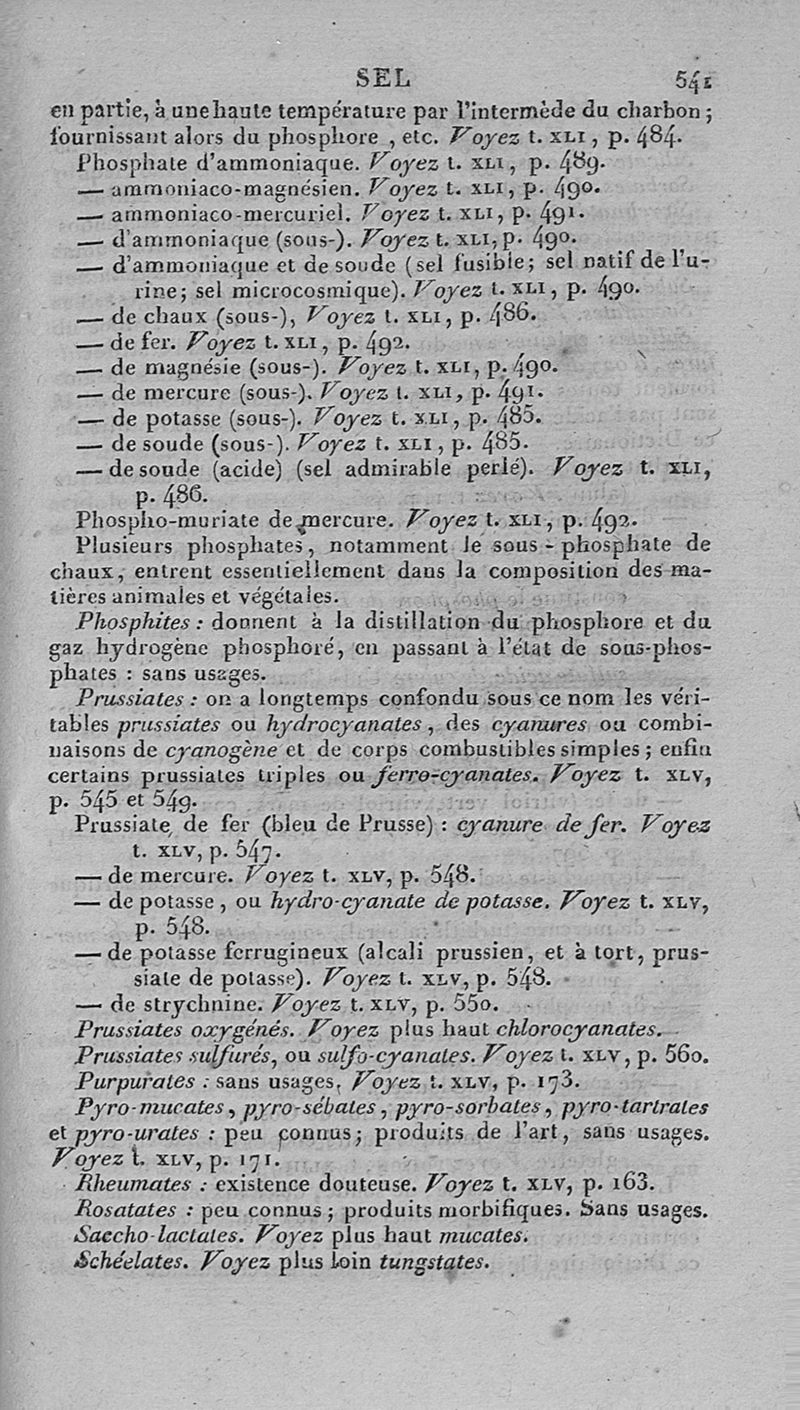 SEL 541
en partie, à une haute température par l'intermède du charbon;
fournissant alors du phosphore, etc. Voyez t. XLI, p. 484.
Phosphate d'ammoniaque. Voyez t. XLI, p. 489.
— ammoniaco-magnésien. Voyez t. XLI, p. 490.
— ammoniaco-mercuriel. Voyez t. XLI, p. 491.
— d'ammoniaque (sous-). Voyez t. XLI, p. 490.
— d'ammoniaque et de soude (sel fusible; sel natif de l'u-
rine; sel microcosmique). Voyez t. XLI, p. 490.
— de chaux (sous-), Voyez t. XLI, p. 486.
— de fer. Voyez t. XLI, p. 492.
— de magnésie (sous-). Voyez t. XLI, p. 490.
— de mercure (sous-). Voyez t. XLI, p. 491.
— de potasse (sous-). Voyez t. XLI, p. 485.
— de soude (sous-). Voyez t. XLI, p. 485.
— de soude (acide) (sel admirable perlé). Voyez t. XLI,
p. 486.
Phospho-muriate de mercure. Voyez t. XLI, p. 492.
Plusieurs phosphates, notamment le sous-phosphate de
chaux, entrent essentiellement dans la composition des ma-
tières animales et végétales.
Phosphites : donnent à la distillation du phosphore et du
gaz hydrogène phosphoré, en passant à l'état de sous-phos-
phates : sans usages.
Prussiates : on a longtemps confondu sous ce nom les véri-
tables prussiates ou hydrocyanates, des cyanures ou combi-
naisons de cyanogène et de corps combustibles simples; enfin
certains prussiates triples ou ferro-cyanates. Voyez t. XLV,
p. 545 et 549.
Prussiate de fer (bleu de Prusse) : cyanure de fer. Voyez
t. XLV, p. 547.
— de mercure. Voyez t. XLV, p. 548.
— de potasse, ou hydro-cyanate de potasse. Voyez t. XLV,
p. 548.
— de potasse ferrugineux (alcali prussien, et à tort, prus-
siate de potasse). Voyez t. XLV, p. 548.
— de strychnine. Voyez t. XLV, p. 550.
Prussiates oxygénés. Voyez plus haut chlorocyanates.
Prussiates sulfurés, ou sulfo-cyanates. Voyez t. XLV, p. 560.
Purpurates : sans usages, Voyez t. XLV, p. 173.
Pyro-mucates, pyro-sébates, pyro-sorbates, pyro-tartrates
et pyro-urates : peu connus; produits de l'art, sans usages.
Voyez t. XLV, p. 171.
Rheumates : existence douteuse. Voyez t. XLV, p. 163.
Rosatates : peu connus; produits morbifiques. Sans usages.
Saccho-lactates. Voyez plus haut mucates.
Schéelates. Voyez plus loin tungstates.